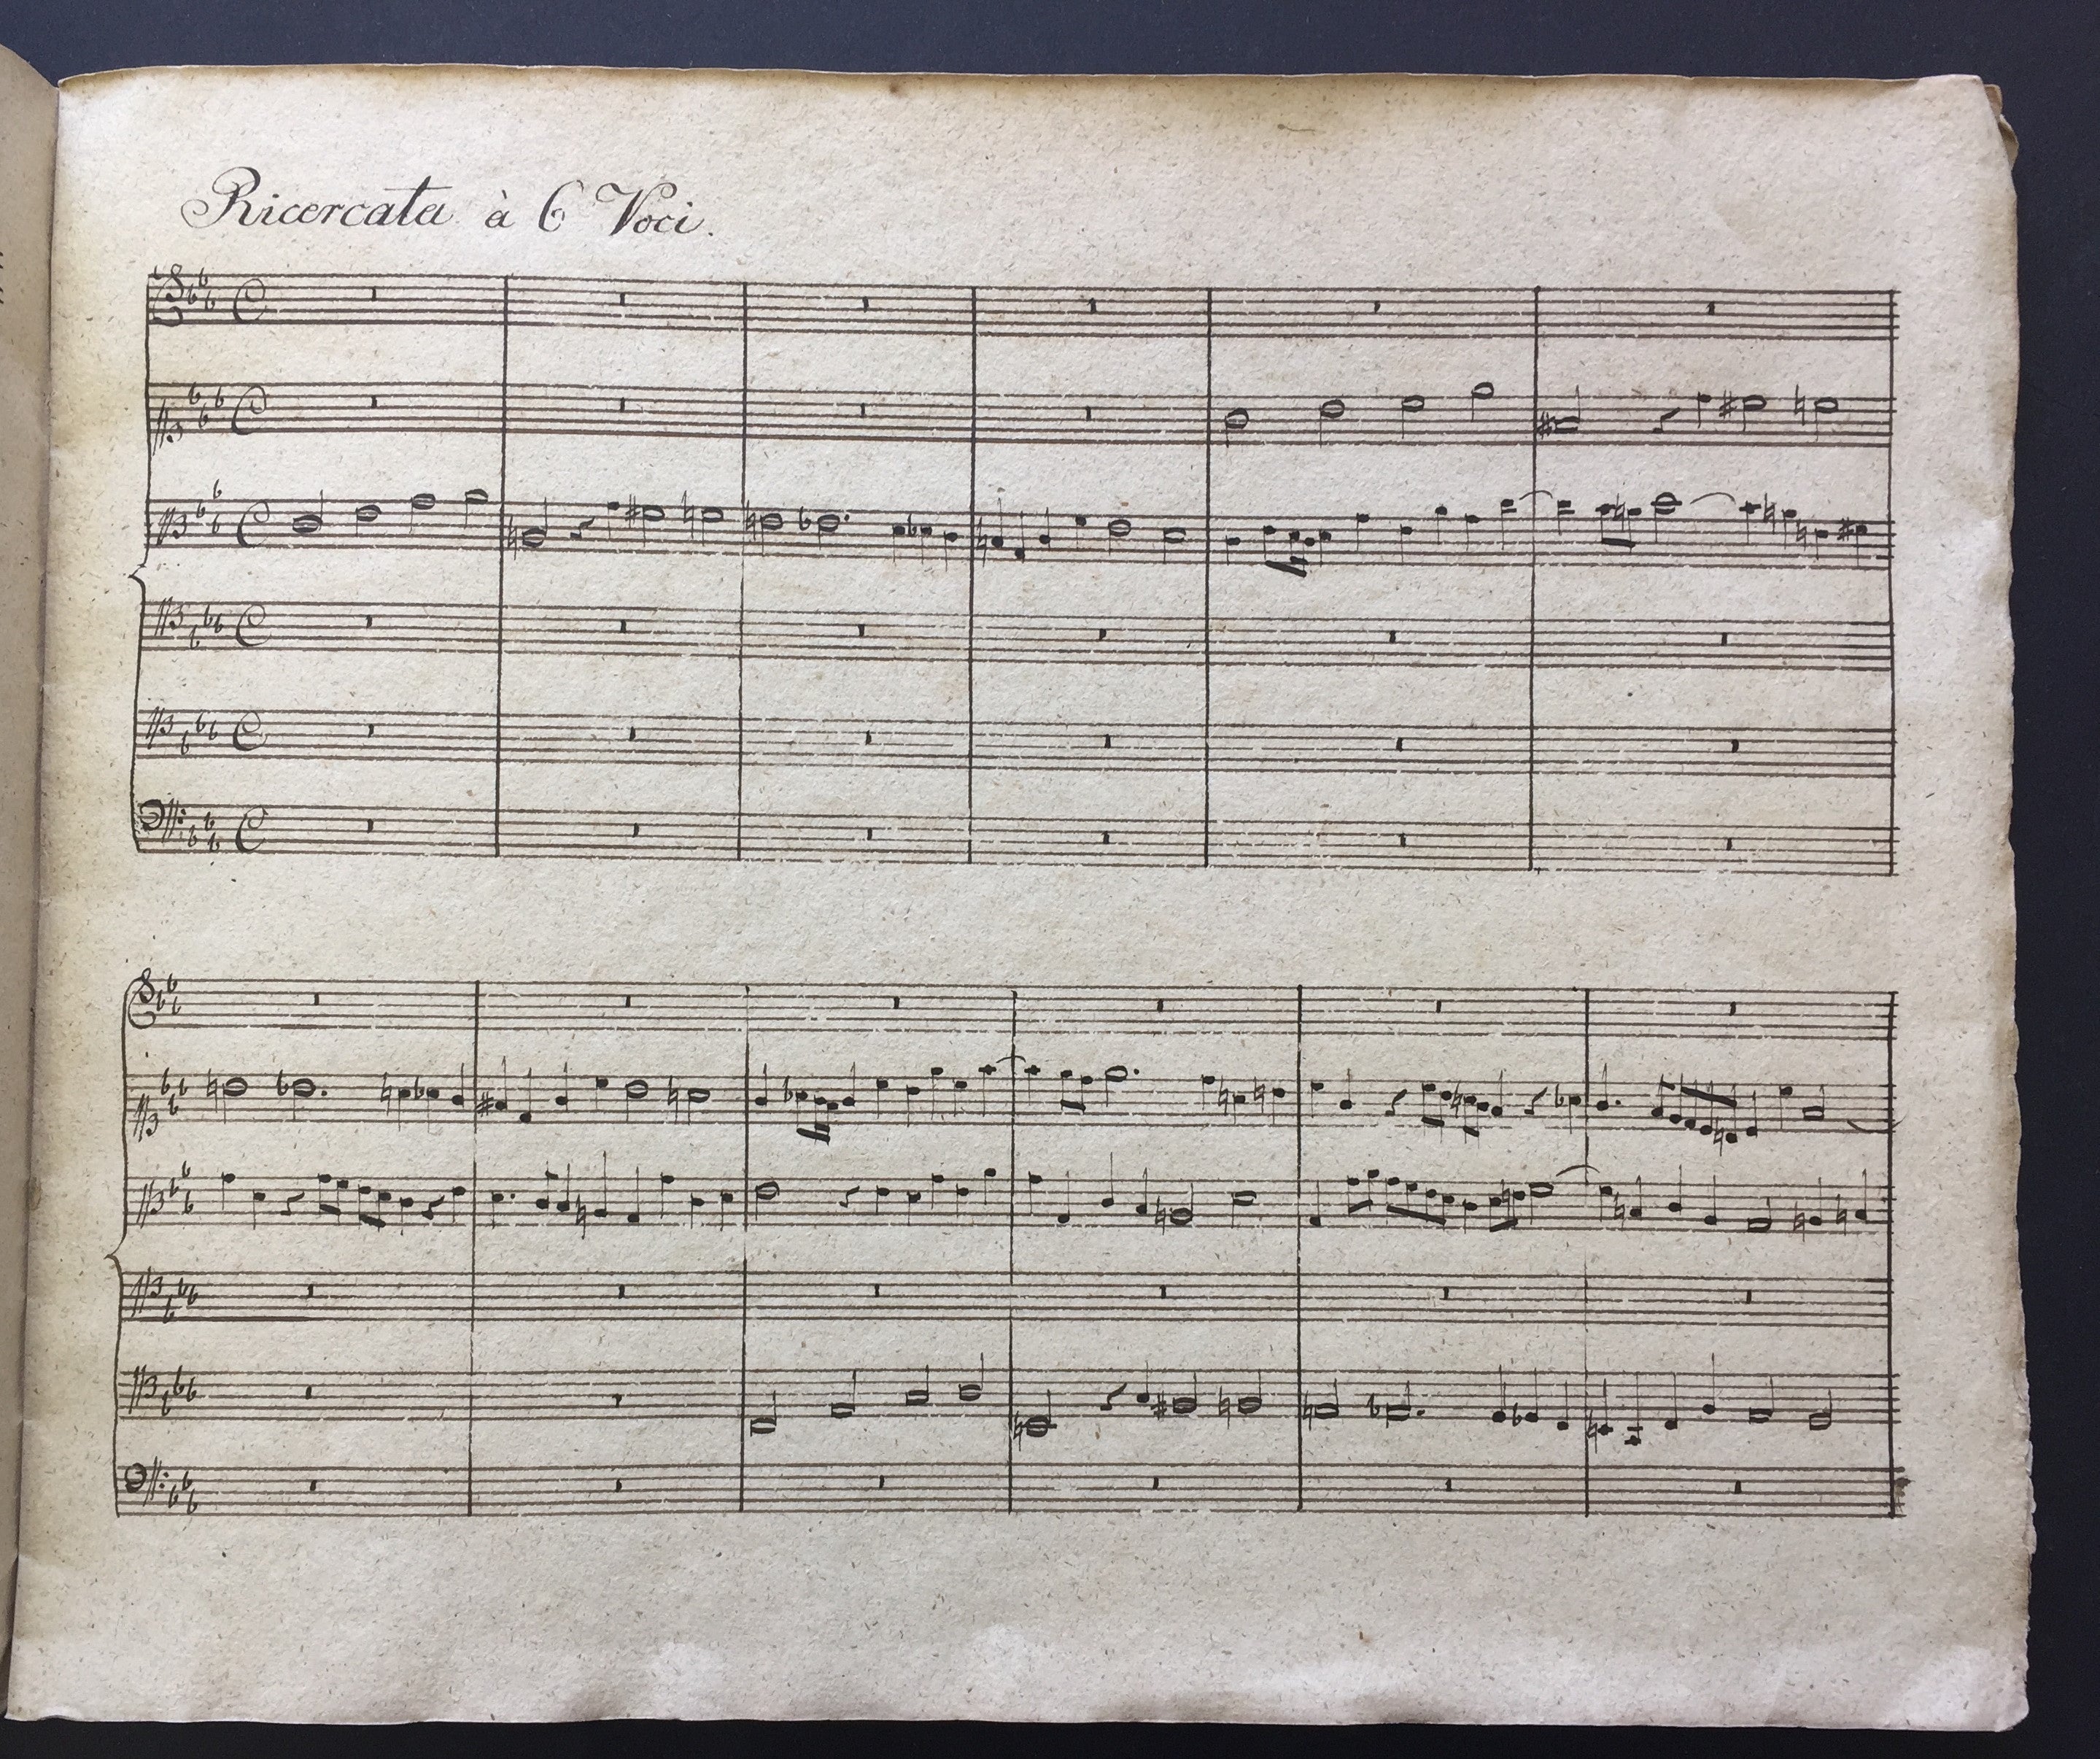 Ricercata à 6 Voci.